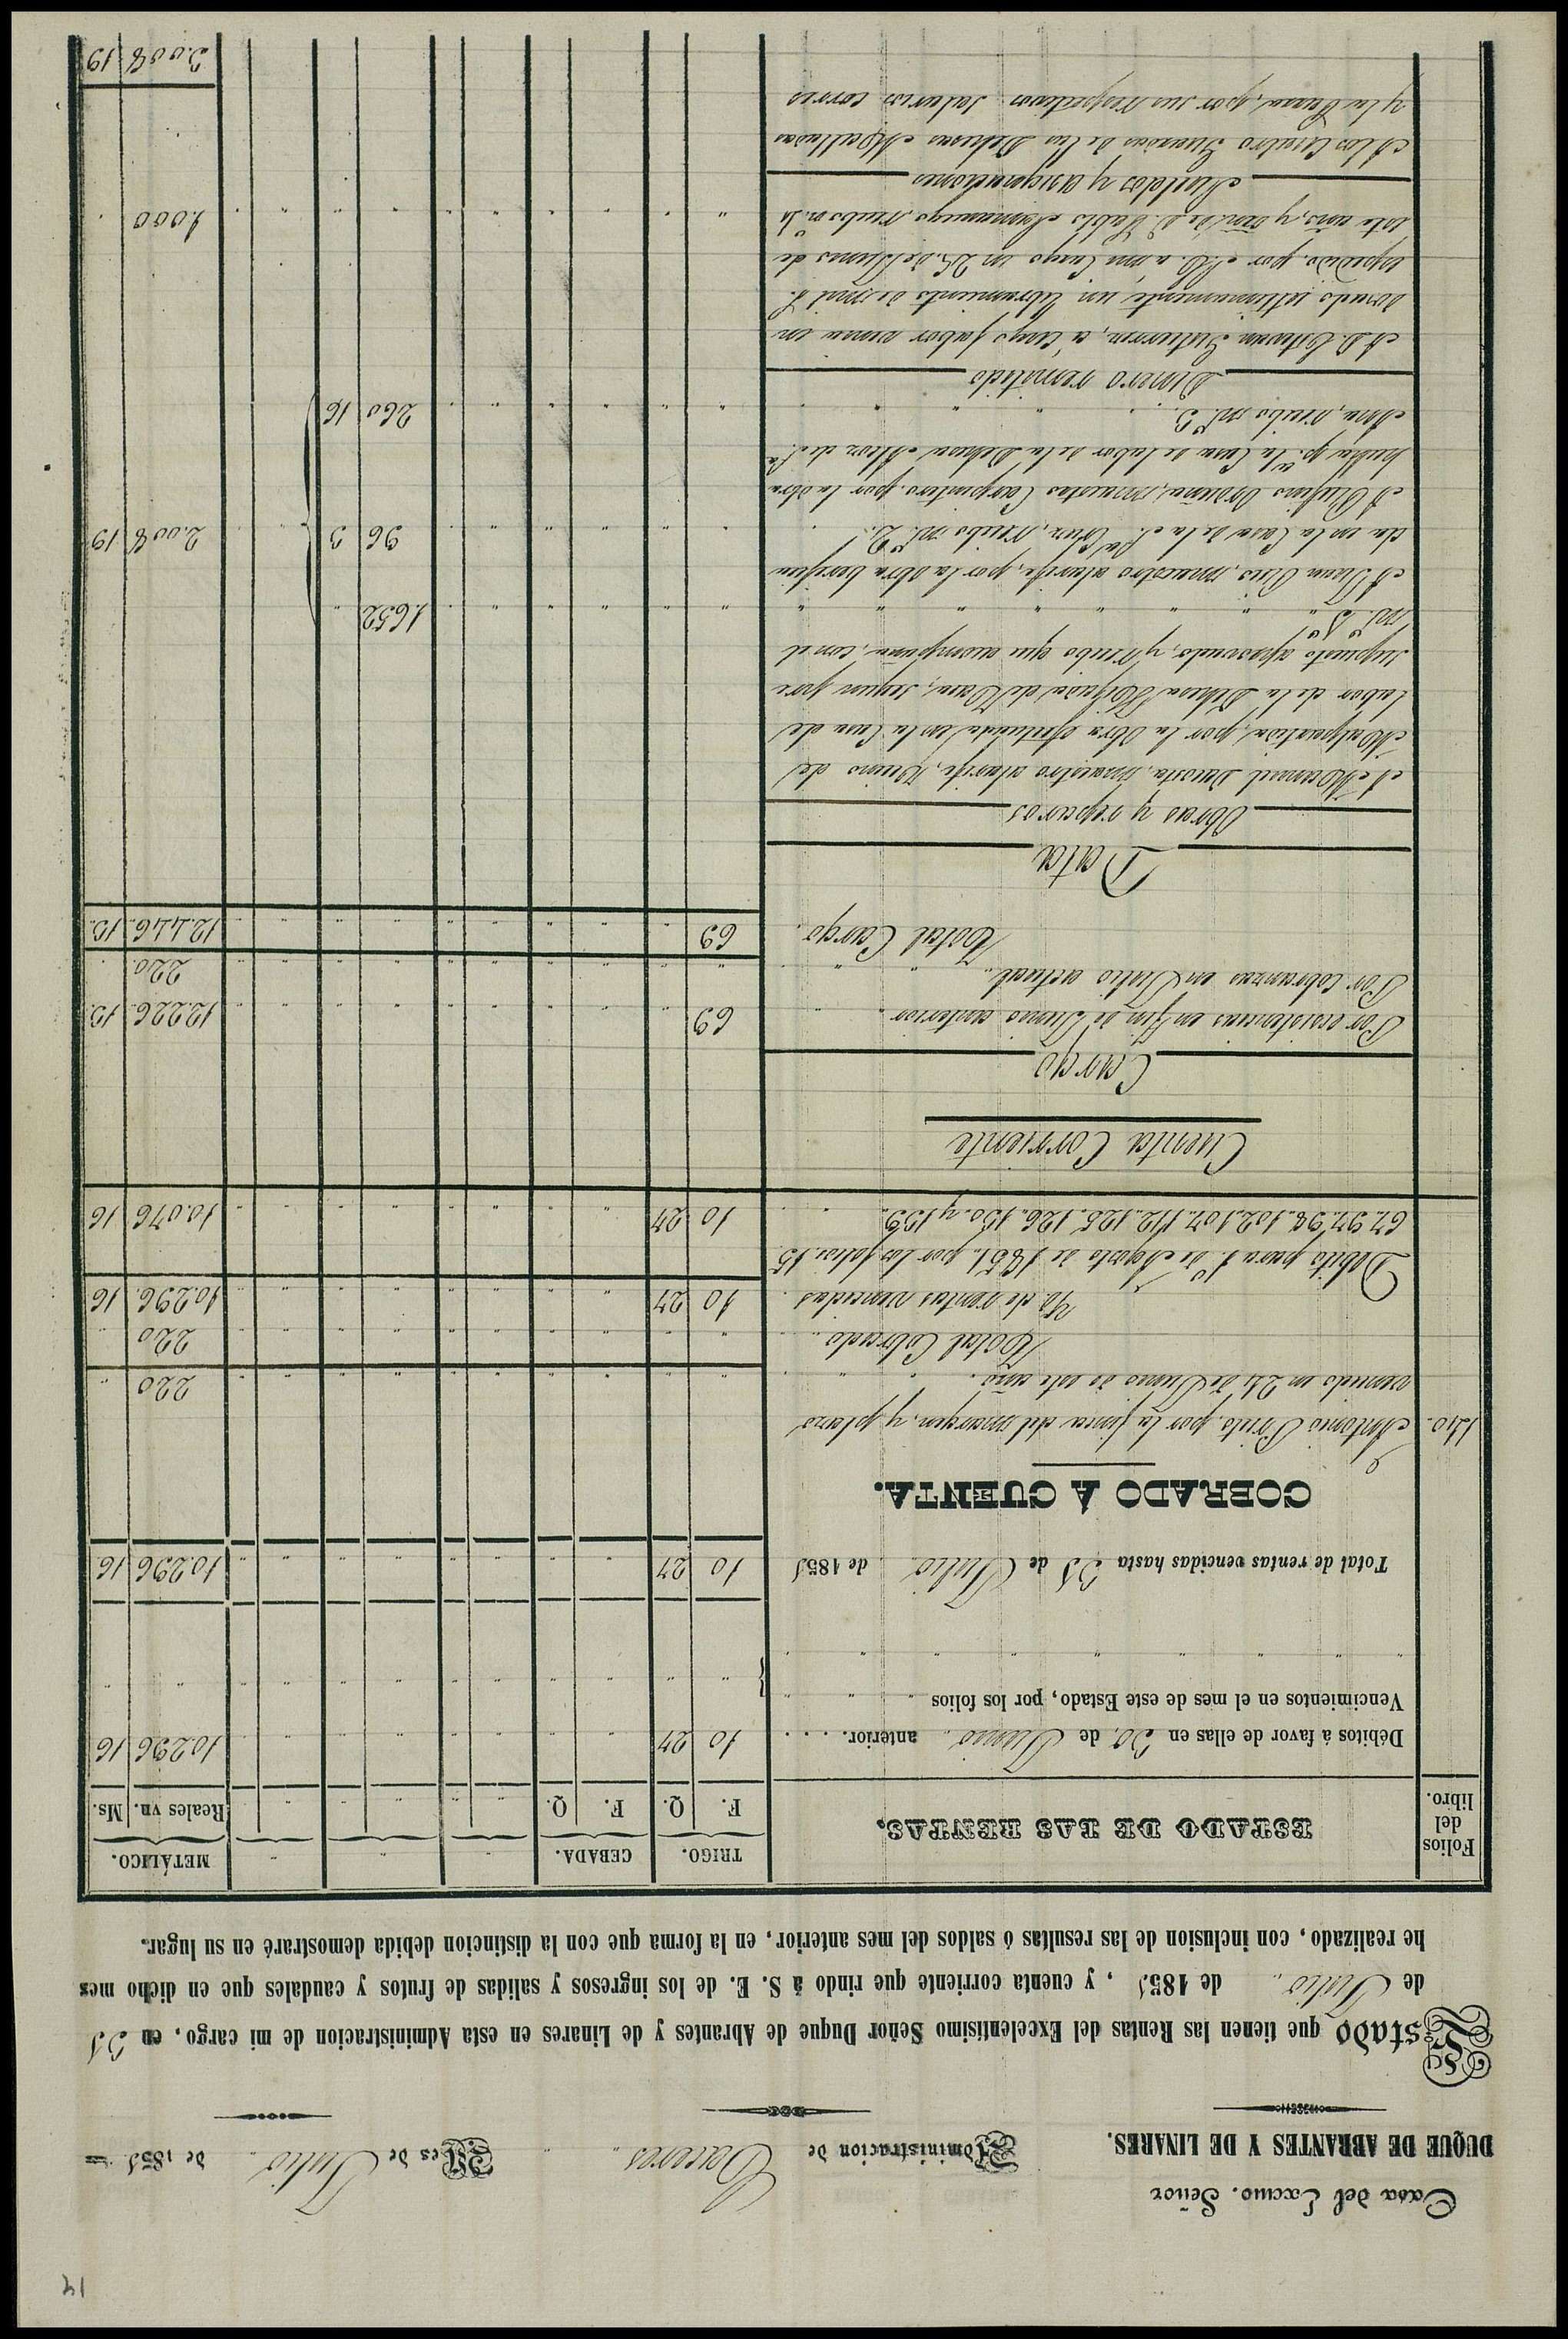 14
Casa del Excmo. Señor
DUQUE DE ABRANTES Y DE LINARES.
Administracion de Caceres
Mes de Julio de 1851
Estado que tienen las Rentas del Excelentísimo Señor Duque de Abrantes y de Linares en esta Administracion de mi cargo, en 31
de Julio de 1851, y cuenta corriente que rindo á S. E. de los ingresos y salidas de frutos y caudales que en dicho mes
he realizado, con inclusion de las resultas ó saldos del mes anterior, en la forma que con la distincion debida demostraré en su lugar.
Folios del libro.
ESTADO DE LAS RENTAS.
TRIGO. CEBADA. METÁLICO.
F. Q. F. Q. Reales vn. Ms.
Débitos á favor de ellas en 30, de Junio anterior. . . . 10 27 10.296 16
Vencimientos en el mes de este Estado, por los folios
Total de rentas vencidas hasta 31 de Julio de 1851 10 27 10.296 16
COBRADO Á CUENTA.
140. Antonio Polo, por la finca del margen, y plazo
vencido en 24 de Junio de este año 220
Total Cobrado 220
Yd. de rentas vencidas 10 27 10.296 16
Débito para 1º de Agosto de 1851, por los folios 15
67. 97. 98. 102. 107. 112. 125. 126. 150. y 159. 10 27 10.076 16
Cuenta Corriente
Cargo
Por existencias en fin de Junio anterior 69 12.226 15
Por cobranzas en Julio actual 220
Total Cargo 69 12.446 15
Data
Obras y reparos
A Manuel Duarte, maestro alarife, vecino de
Malpartida, por la obra efectuada en la Casa de
labor de la Dehesa Higuera de Vara, segun pre
supuesto aprobado, y recibo que acompaña, con el
nº 1º 1652
A Juan Rino, maestro alarife, por la obra verifica
da en la Casa de la Sª Cruz, recibo nº 2. 96 3
A Rufino Orduña, maestro Carpintero, por la obra
hecha pª la Casa de labor de la Dehesa Alcor de Sª
Ana, recibo nº 3. 260 16
2.008 19
Dinero remitido
A D. Estevan Gutierrez, á cuyo favor viene en
dosado ultimamente, un libramiento de mil rs.
espedido por á mi cargo en 25 de Junio de
este año, y orn de D. Pablo recibo n. 4 1.000
Sueldos y asignaciones
A los Cuatro Guardas de las Dehesas
y la Casa, por sus respectivos salarios corres
3.008 19